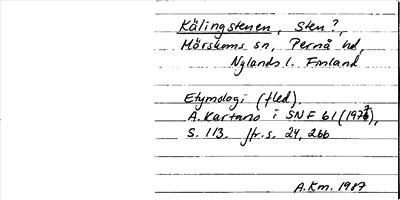 Kälingstenen, Sten?,
Mörskoms sn, Pernå hd,
Nylands l. Finland
Etymologi (fled).
A. Kartano i SNF 61 (1973),
S. 113. Jfr. s. 24, 266
A.Km. 1987